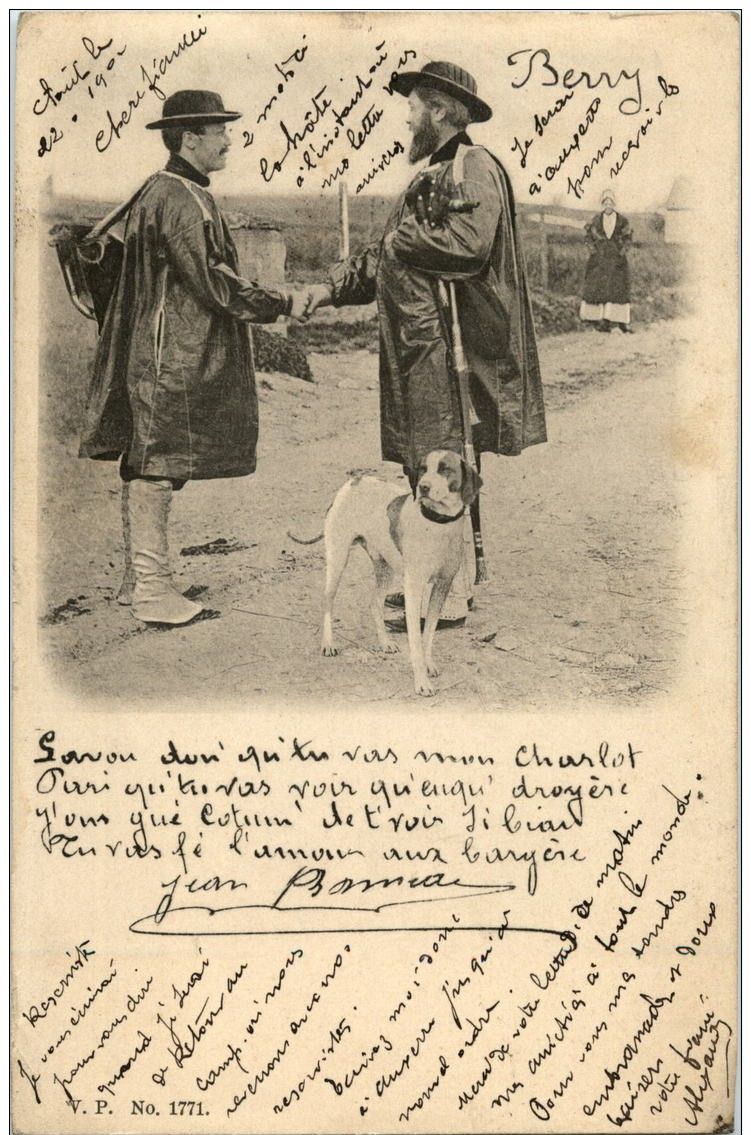 Août le
22. 190
Chere fiancée
2 mots à
la hâte
à l'instant où
ma lettre vous
arrivera
Berry
Je serai
à auxerre
pour
recevoir la
Lavou don' qu'tu vas mon Charlot
Pari qu'tu vas voir qu'euqu' droyère
J'ons qué Cotum' de t'voir si biau
Tu vas fé l'amour aux bargère
Jean
Je vous écrirai
pour vous dire
quand je serai
de Retour au
camp, où nous
reservistes.
Ecrivez moi donc
à auxerre jusqu'à
nouvel ordre.
votre lettre de ce matin
mes amitiés à tout le monde.
Pour vous mes tendres
embrassades et doux
baisers
votre fiancé
V. P. No. 1771.